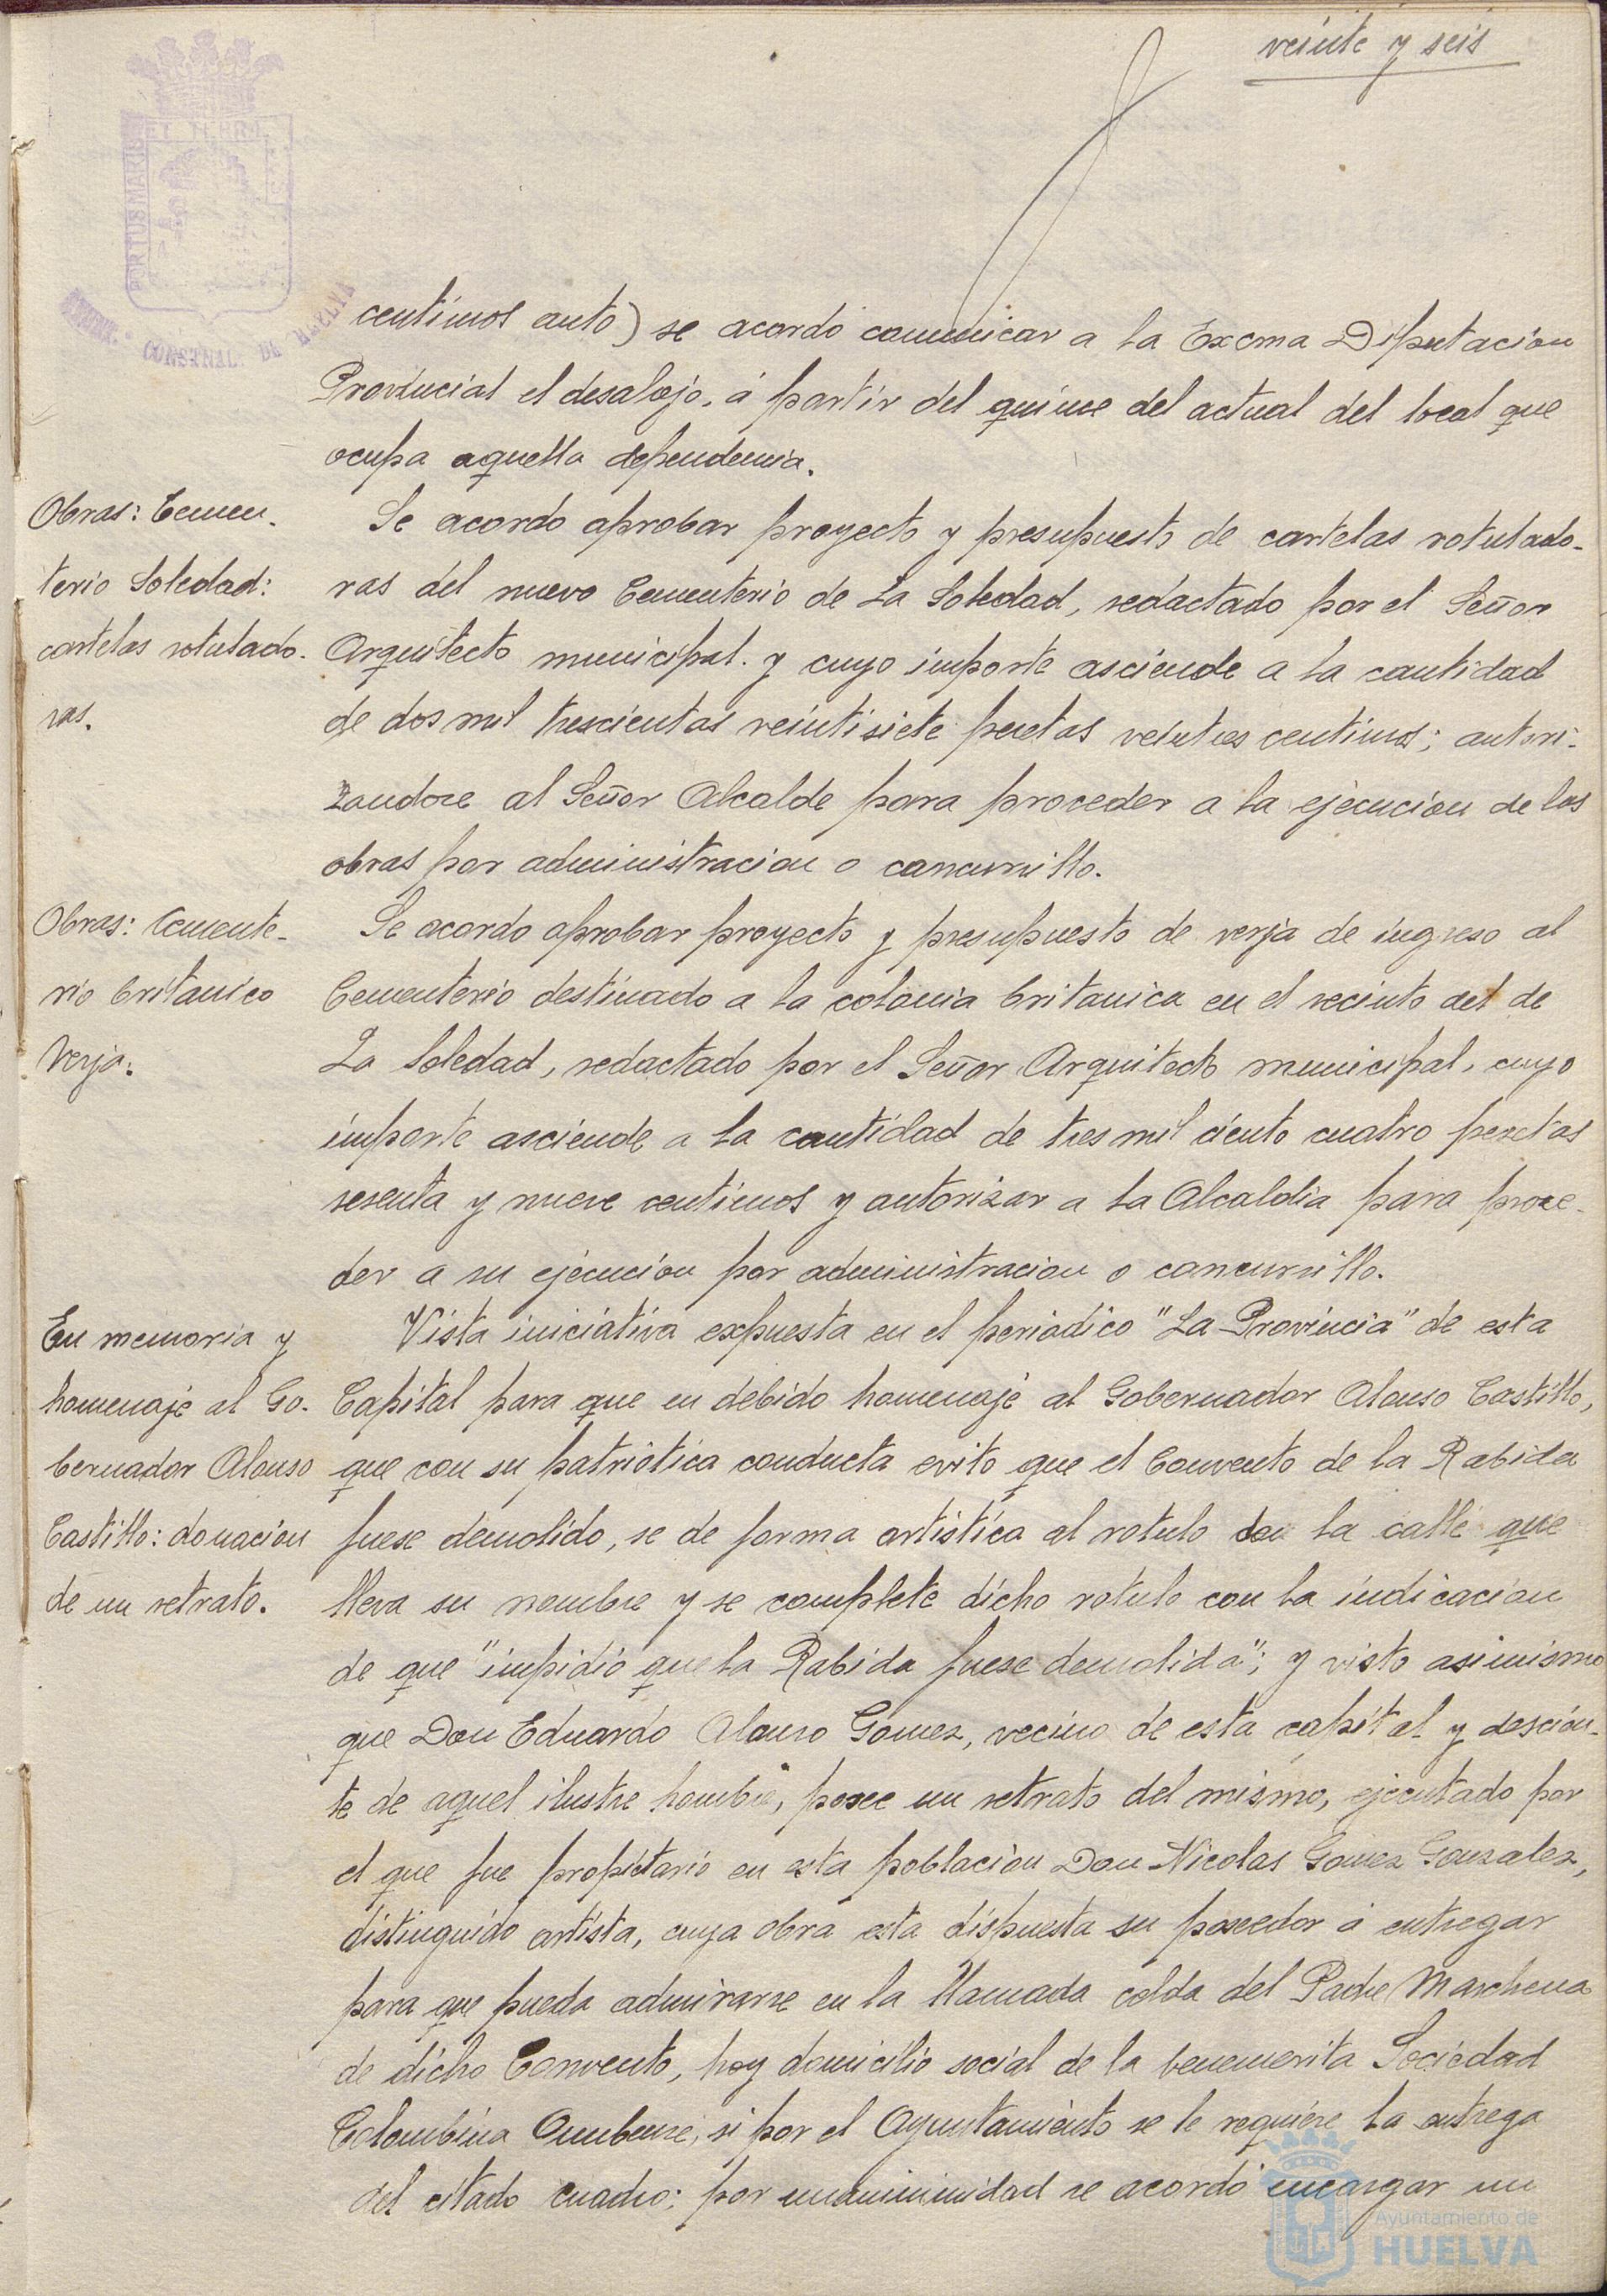 veinte y seis
PORTUS MARIS ET TERRE
CONSTNAL. DE HUELVA
centimos auto) se acordo comunicar a la Excma Diputacion
Provincial el desalojo, á partir del quince del actual del local que
ocupa aquella dependencia.
Obras: Cemen-
terio Soledad:
cartelas rotulado-
ras.
Se acordo aprobar proyecto y presupuesto de cartelas rotulado-
ras del nuevo Cementerio de La Soledad, redactado por el Señor
Arquitecto municipal. y cuyo importe asciende a la cantidad
de dos mil trescientas veintisiete pesetas veintres centimos; autori-
zandose al Señor Alcalde para proceder a la ejecucion de las
obras por administracion o concursillo.
Obras: Cemente-
rio britanico
Verja.
Se acordo aprobar proyecto y presupuesto de verja de ingreso al
Cementerio destinado a la colonia britanica en el recinto del de
La Soledad, redactado por el Señor Arquitecto municipal, cuyo
importe asciende a la cantidad de tres mil ciento cuatro pesetas
sesenta y nueve centimos y autorizar a la Alcaldia para proce-
der a su ejecucion por administracion o concursillo.
En memoria y
homenaje al Go-
bernador Alonso
Castillo: donacion
de un retrato.
Vista iniciativa expuesta en el periodico "La Provincia" de esta
Capital para que en debido homenaje al Gobernador Alonso Castillo,
que con su patriotica conducta evito que el Convento de la Rabida
fuese demolido, se de forma artistica al rotulo de la calle que
lleva su nombre y se complete dicho rotulo con la indicacion
de que "impidio que la Rabida fuese demolida"; y visto asimismo
que Don Eduardo Alonso Gomez, vecino de esta capital y descien-
te de aquel ilustre hombre, posee un retrato del mismo, ejecutado por
el que fue propietario en esta poblacion Don Nicolas Gomez Gonzalez,
distinguido artista, cuya obra esta dispuesta su poseedor á entregar
para que pueda admirarse en la llamada celda del Padre Marchena
de dicho Convento, hoy domicilio social de la benemerita Sociedad
Colombina Onubense, si por el Ayuntamiento se le requiere la entrega
del citado cuadro; por unanimidad se acordó encargar un
Ayuntamiento de
HUELVA